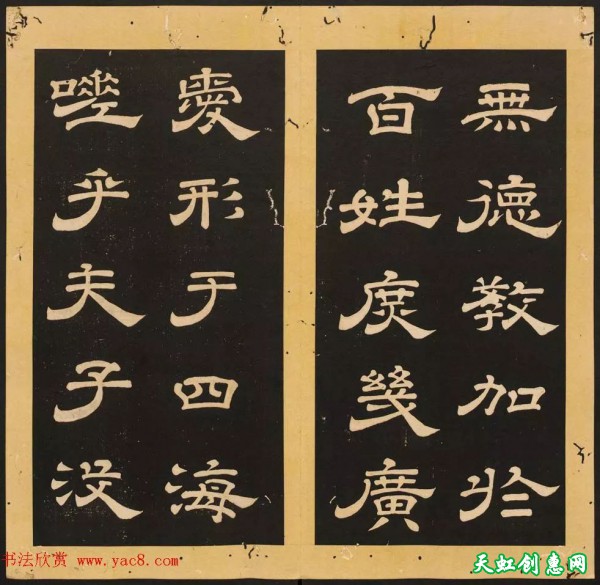 無德教加於
百姓庶幾廣
愛形于四海
嗟乎夫子沒
书法欣赏 www.yac8.com
天虹创惠网